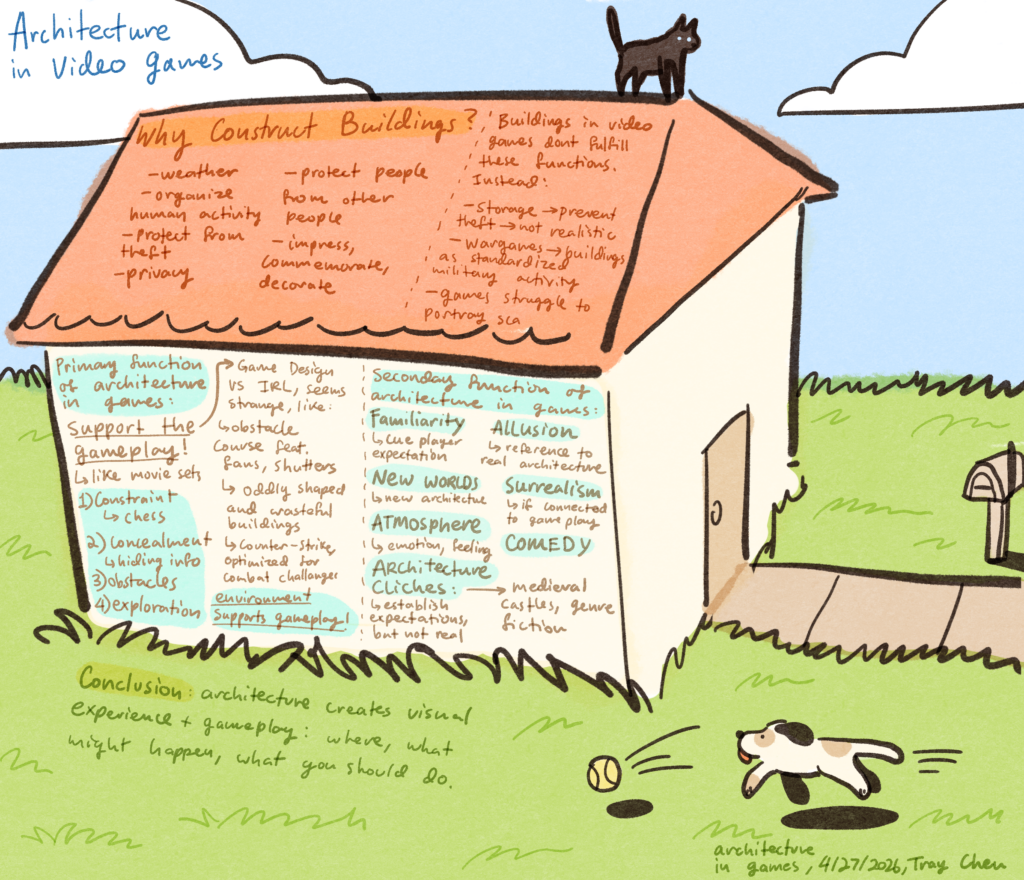 Architecture
in Video games
Why Construct Buildings?
-weather
-organize
human activity
-protect from
theft
-privacy
-protect people
from other
people
-impress,
commemorate,
decorate
Buildings in video
games dont fulfill
these functions.
Instead:
-Storage→prevent
theft→not realistic
-Wargames→buildings
as standardized
military activity
-games struggle to
portray sca
Primary function
of architecture
in games:
Support the
gameplay!
↳like movie sets
1)Constraint
↳ chess
2) Concealment
↳hiding info
3)obstacles
4)exploration
→Game Design
VS IRL, seems
strange, like:
↳obstacle
course feat.
fans, shutters
↳ oddly shaped
and wasteful
buildings
↳Counter-Strike
optimized for
combat challanges
environment
supports gameplay!
Secondary function of
architecture in games:
Familiarity
↳cue player
expectation
NEW WORLDS
↳new architectue
ATMOSPHERE
↳emotion, feeling
ARchitecture
Cliches:
↳establish
expectations,
but not real
→ medieval
castles, genre
fiction
Allusion
↳reference to
real architecture
Surrealism
↳if connected
to gameplay
COMEDY
Conclusion: architecture creates visual
experience + gameplay: where, what
might happen, what you should do.
architecture
in games, 4/27/2026, Tray Chen